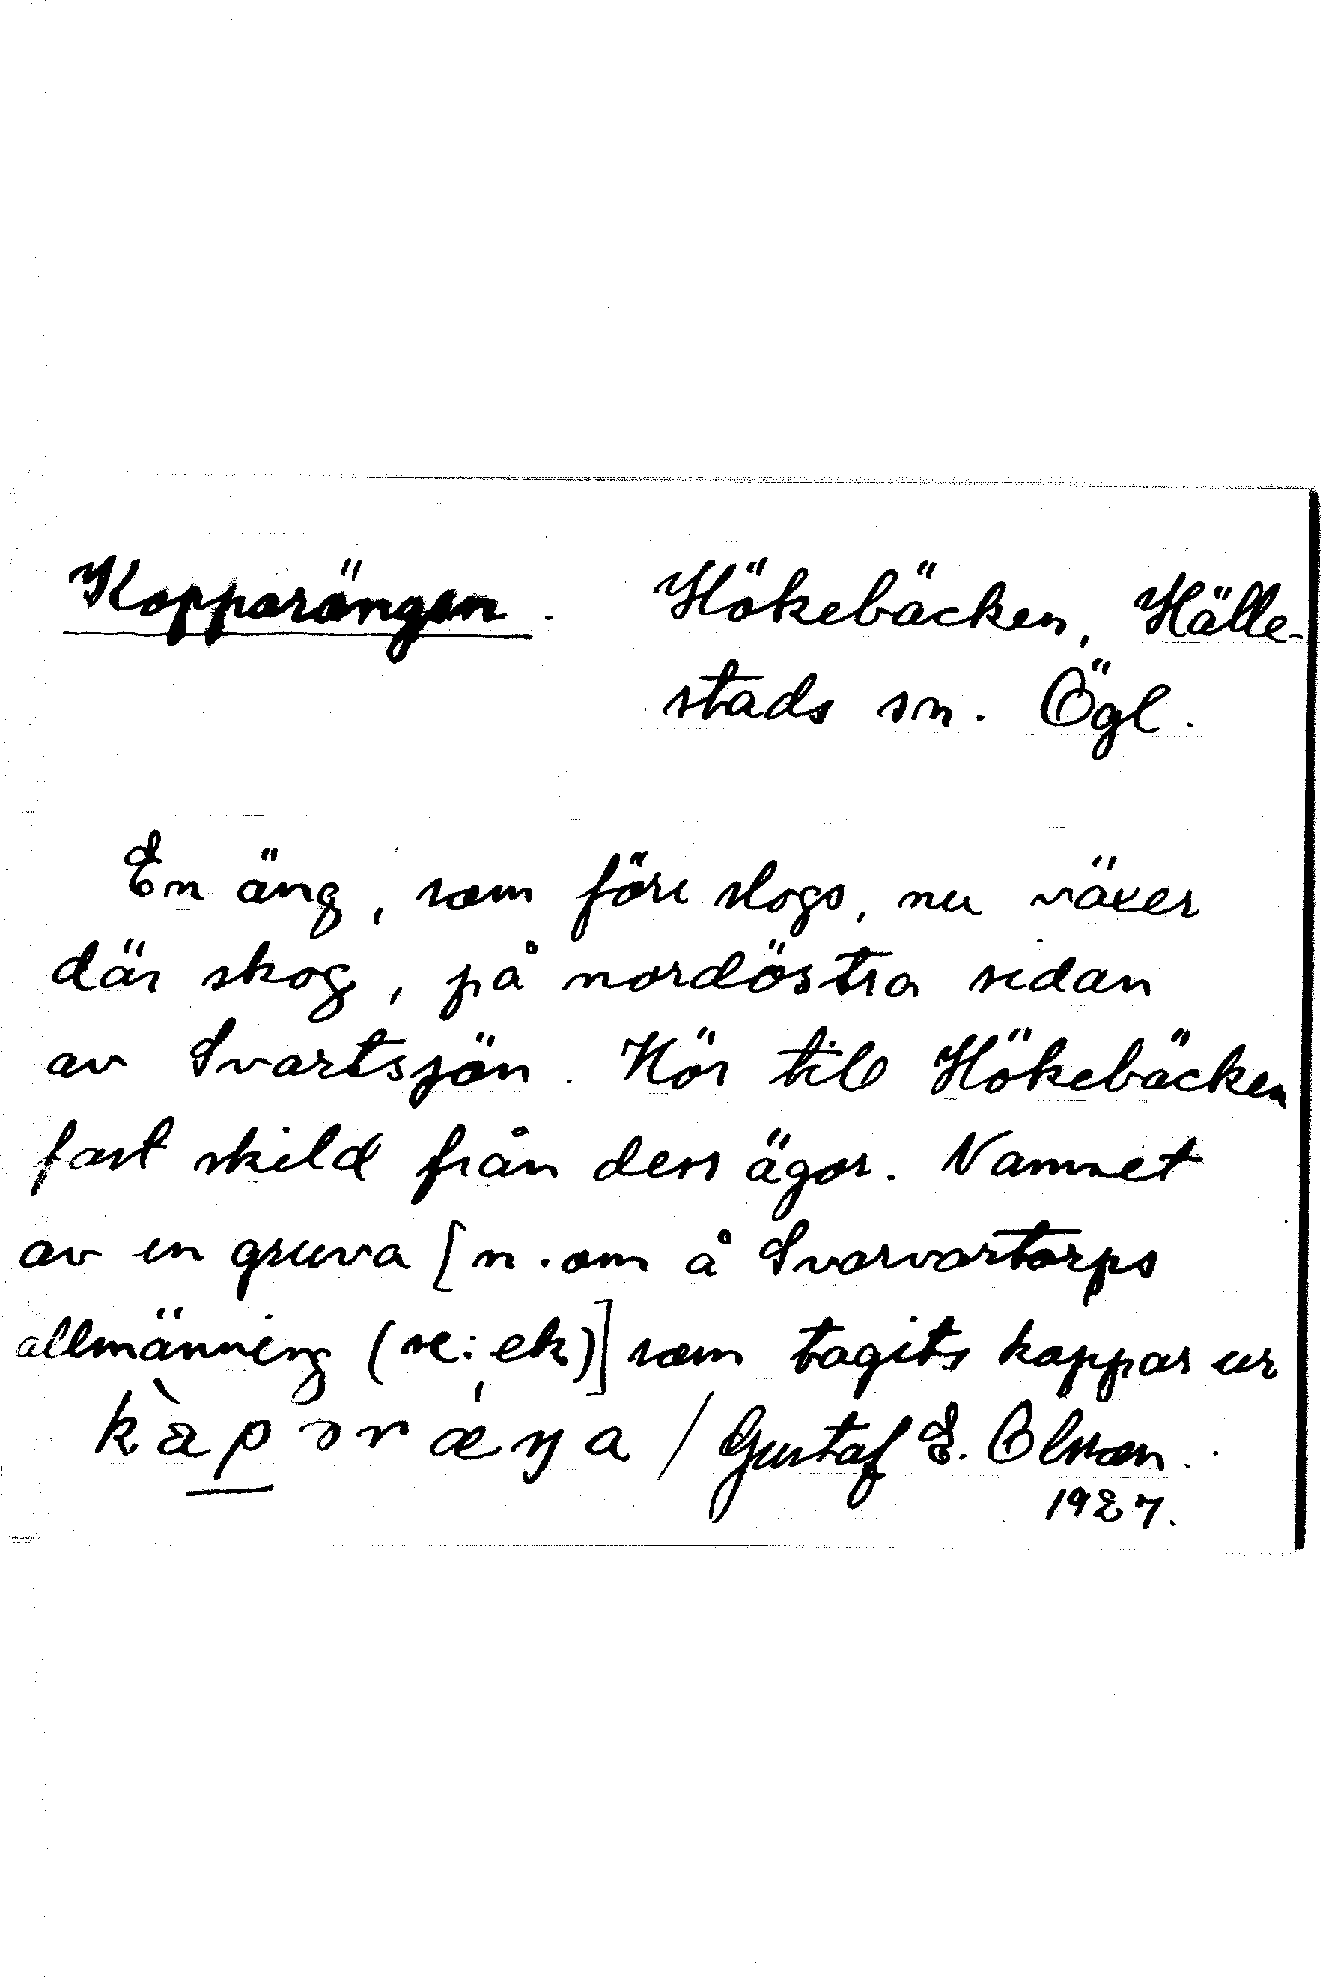 Kopparängen. Hökebäcken, Hälle-
stads sn. Ögl.
En äng, som förr slogs, nu växer
där skog, på nordöstra sidan
av Svartsjön. Hör till Hökebäcken
fast skild från dess ägor. Namnet
av en gruva [n. om å Svarvartorps
allmänning (se: ek)] som tagits koppar ur
/ Gustaf E. Olsson.
1927.